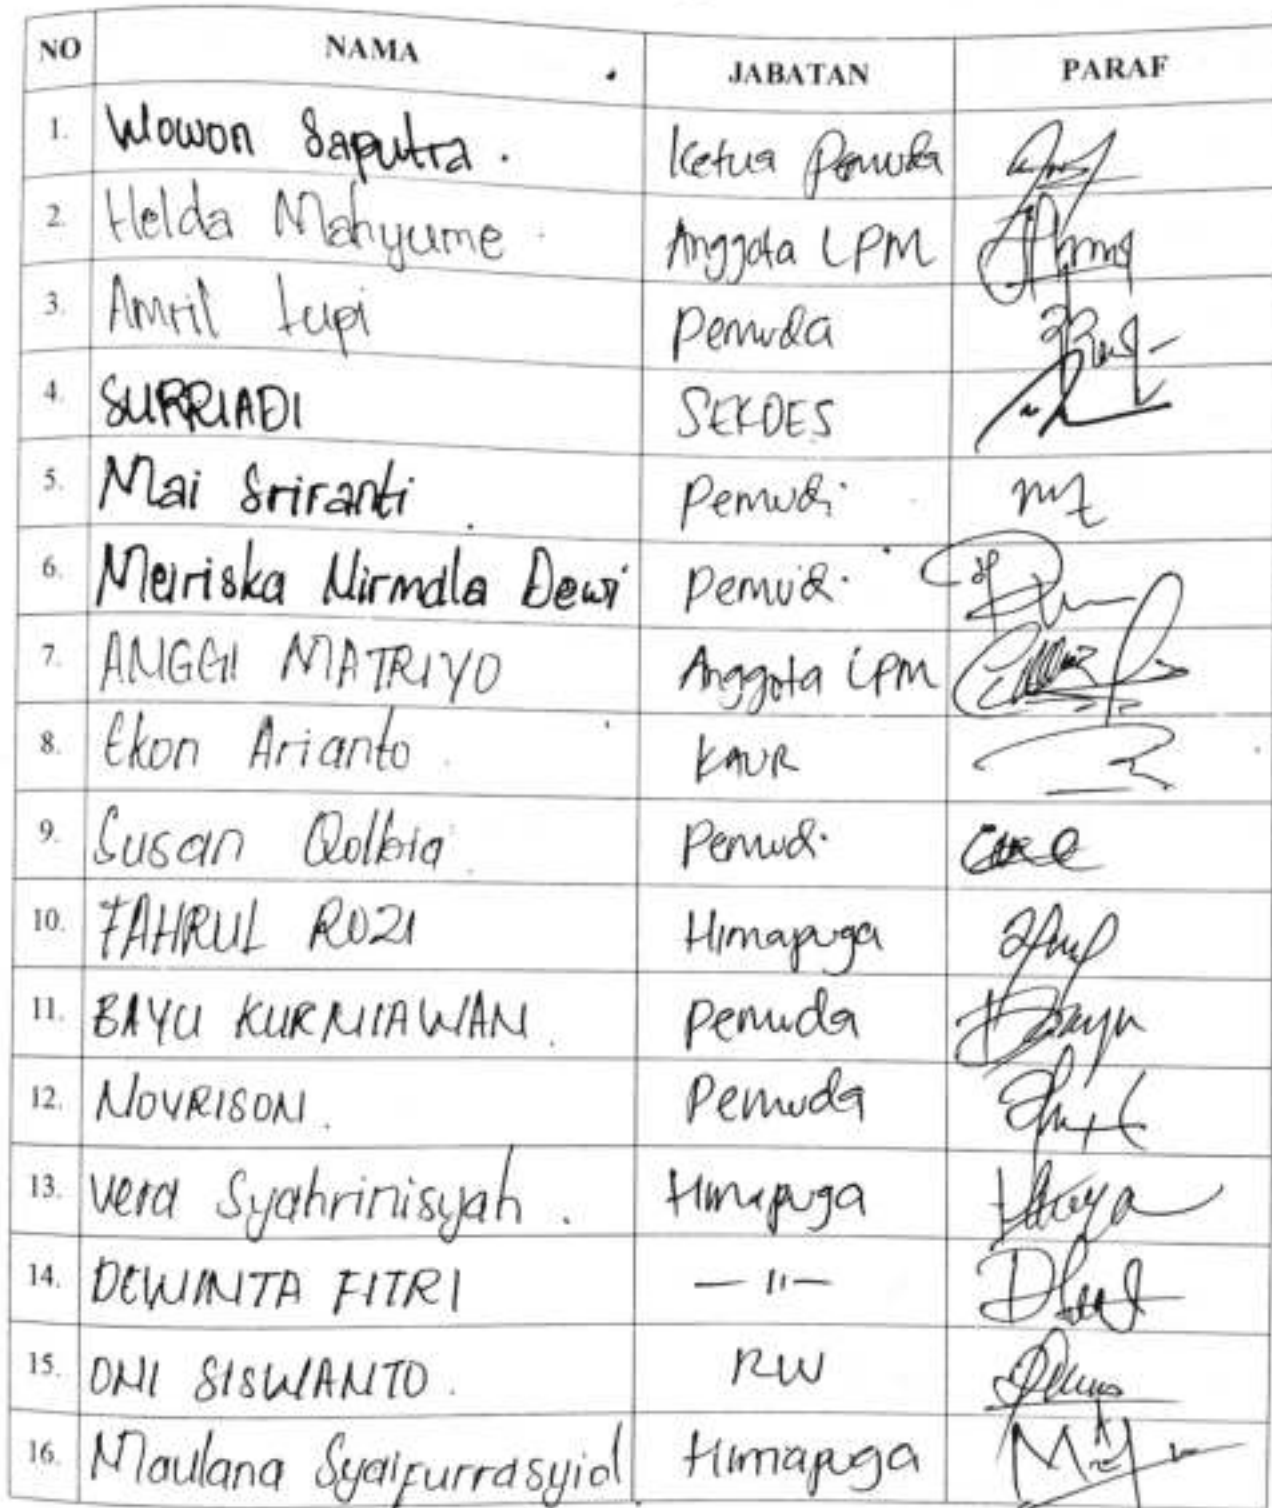 NO NAMA JABATAN PARAF
1. Wowon Saputra. Ketua Pemuda
2. Helda Mahyume Anggota LPM
3. Amril Lupi Pemuda
4. SURRIADI SEKDES
5. Mai Sriranti Pemudi
6. Meiriska Nirmala Dewi Pemudi
7. ANGGI MATRIYO Anggota LPM
8. Ekon Arianto KAUR
9. Susan Qolbia Pemudi
10. FAHRUL ROZI Himapuga
11. BAYU KURNIAWAN. Pemuda Bayu
12. NOVRISON. Pemuda
13. Vera Syahrinisyah. Himapuga
14. DEWINTA FITRI — 11 —
15. ONI SISWANTO. RW
16. Maulana Syaifurrasyid Himapuga